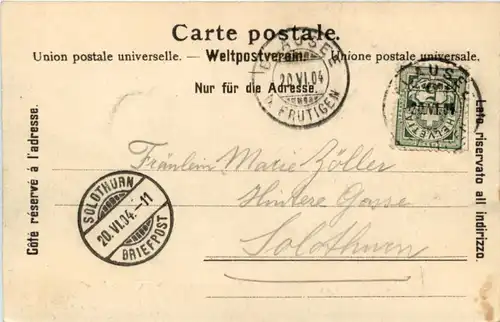 Carte postale.
Union postale universelle. — Weltpostverein. — Unione postale universale.
Nur für die Adresse.
Côté réservé à l'adresse.
Lato riservato all indirizzo.
20.VI.04
FRUTIGEN
HELVETIA
SOLOTHURN
20.VI.04.-11
BRIEFPOST
Fräulein Marie Zöller
Hintere Gasse
Solothurn